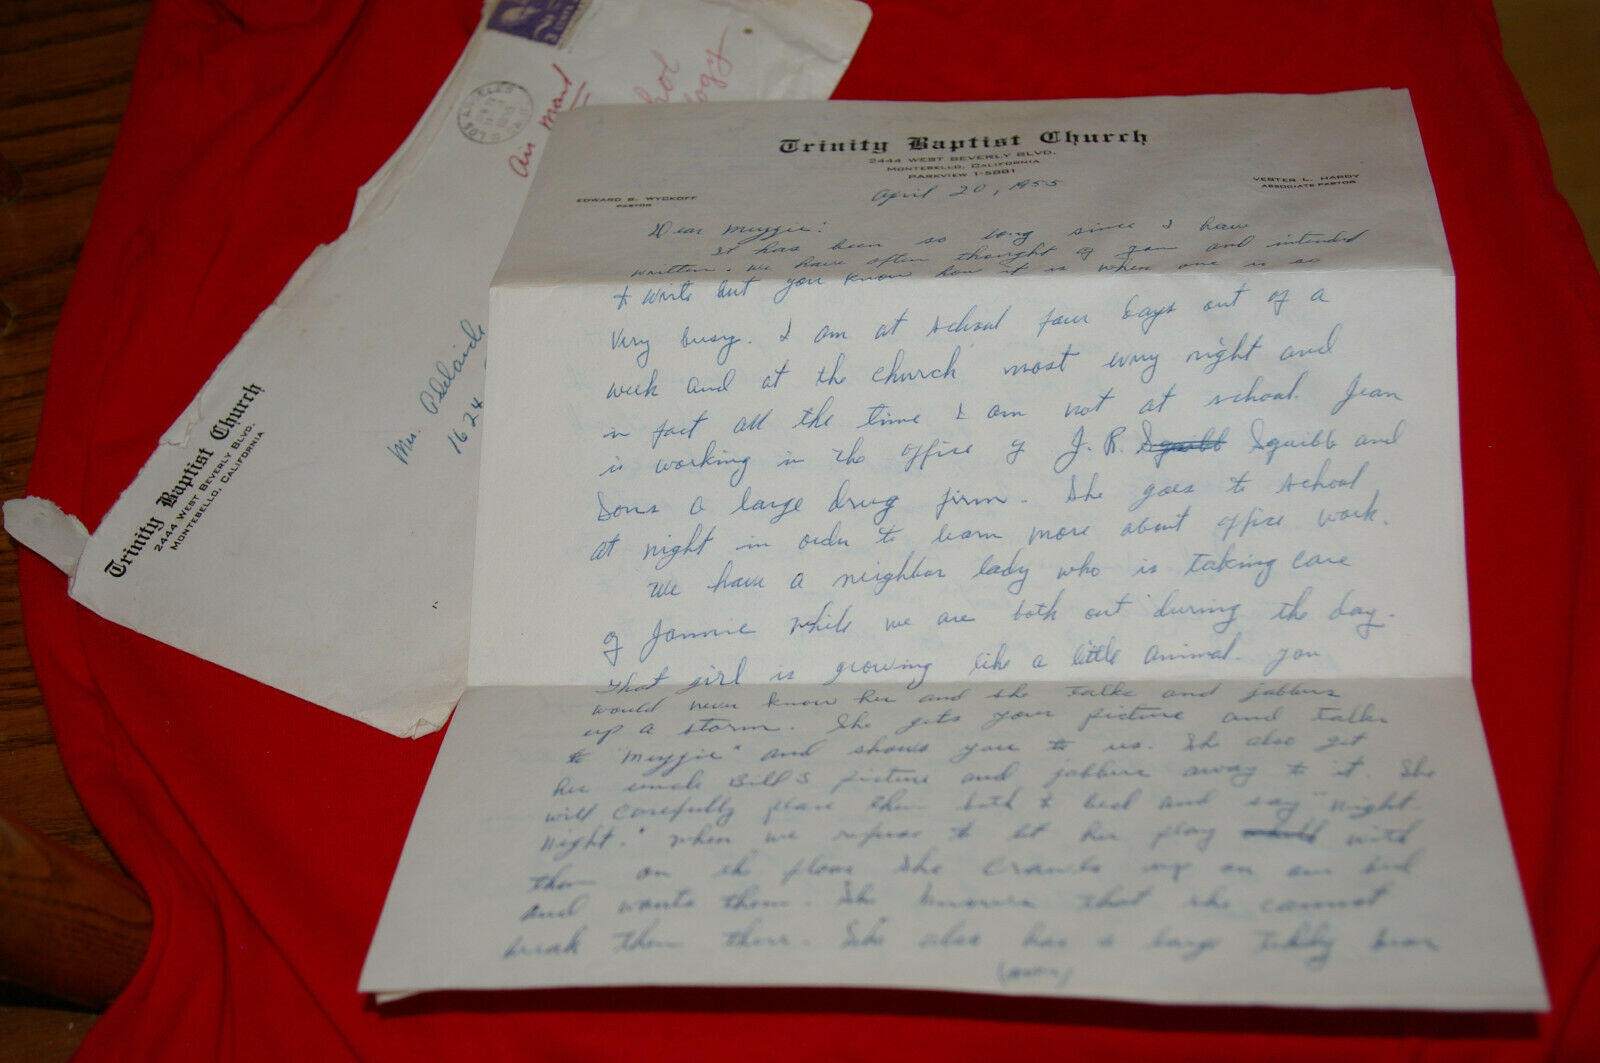 Trinity Baptist Church
2444 WEST BEVERLY BLVD.
MONTEBELLO, CALIFORNIA
PARKVIEW 1-5881
EDWARD S. WYCKOFF
PASTOR
VESTER L. HARDY
ASSOCIATE PASTOR
April 20, 1955
Dear Muggie:
It has been so long since I have
written. We have often thought of you and intended
to write but you know how it is when one is so
very busy. I am at school four days out of a
week and at the church most every night and
in fact all the time I am not at school. Jean
is working in the office of J. R. Squibb Squibb and
Sons a large drug firm. She goes to school
at night in order to learn more about office work.
We have a neighbor lady who is taking care
of Jannie while we are both out during the day.
That girl is growing like a little animal. You
would never know her and she talks and jabbers
up a storm. She gets your picture and talks
to "Muggie" and shows you to us. She also get
her uncle Bill's picture and jabbers away to it. She
will carefully place them both to bed and say "night
night." When we refuse to let her play with
them on the floor she crawls up on our bed
and wants them. She knows that she cannot
break them there. She also has a large teddy bear
(over)
Trinity Baptist Church
2444 WEST BEVERLY BLVD.
MONTEBELLO, CALIFORNIA
Mrs. Adelaide
1624
Air Mail
LOS ANGELES
3 CENTS